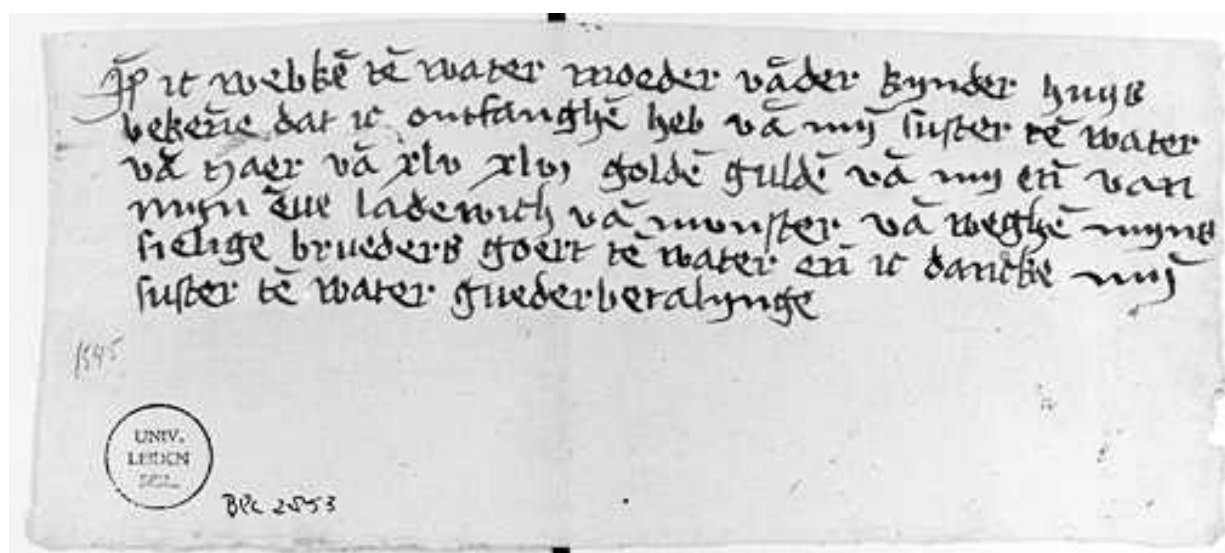 ic webkē tē water moeder vāder kynder huys
bekēne dat ic ontfanghē heb vā mÿ suster tē water
vā yaer vā xlv xlvj goldē guldē vā my eñ van
mynn ēue ladewich vā munster vā weghē myns
sielige brueders goert tē water eñ ic dancke mÿ
suster tē water guederbetalynge
1545
UNIV.
LEIDEN
BIBL.
BPL 2553